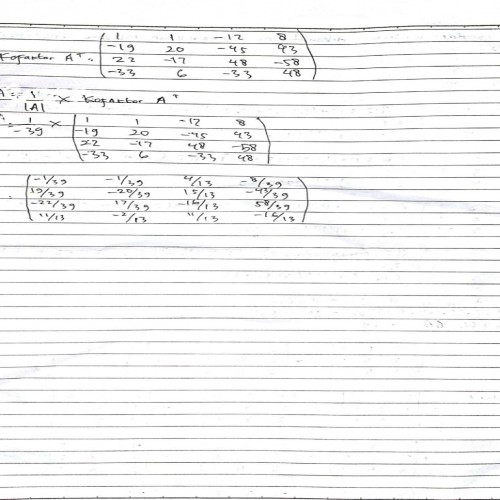 1 1 -12 8
-19 20 -45 43
Kofaktor A⁺ = 22 -17 48 -58
-33 6 -33 48
A = 1/|A| × Kofaktor A⁺
1/-39 × 1 1 -12 8
-19 20 -45 43
22 -17 48 -58
-33 6 -33 48
-1/39 -1/39 4/13 -8/39
19/39 -20/39 15/13 -43/39
-22/39 17/39 -16/13 58/39
11/13 -2/13 11/13 -16/13